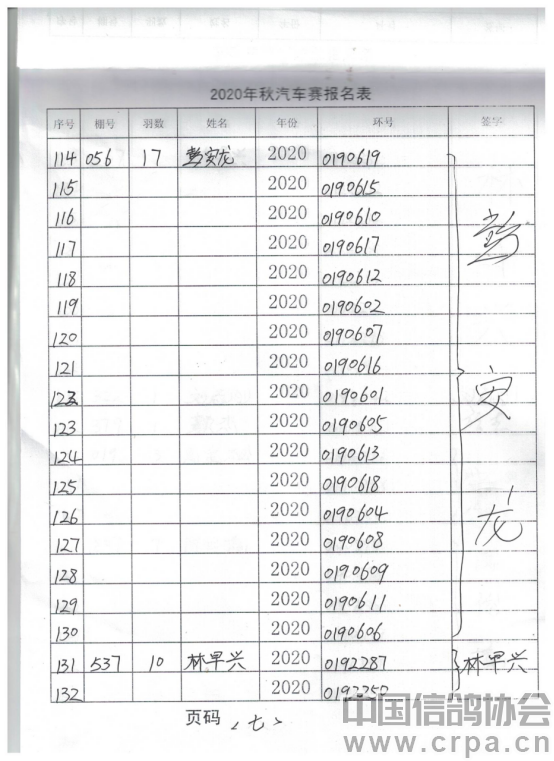 2020年秋汽车赛报名表
序号 棚号 羽数 姓名 年份 环号 签字
114 056 17 彭安龙 2020 0190619 彭安龙
115 2020 0190615
116 2020 0190610
117 2020 0190617
118 2020 0190612
119 2020 0190602
120 2020 0190607
121 2020 0190616
122 2020 0190601
123 2020 0190605
124 2020 0190613
125 2020 0190618
126 2020 0190604
127 2020 0190608
128 2020 0190609
129 2020 0190611
130 2020 0190606
131 537 10 林早兴 2020 0192287 林早兴
132 2020
页码 <七>
中国信鸽协会
www.crpa.cn